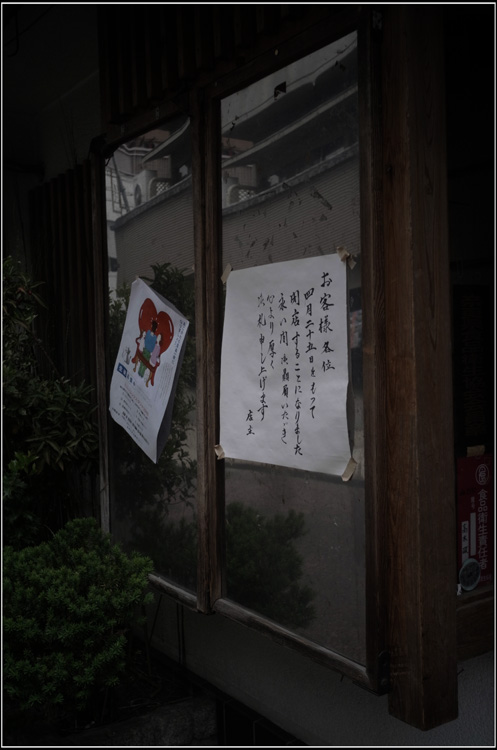 お客様各位
四月二十五日をもって
閉店することになりました
永い間御愛顧いただき
心より厚く
御礼申し上げます
店主
食品衛生責任者